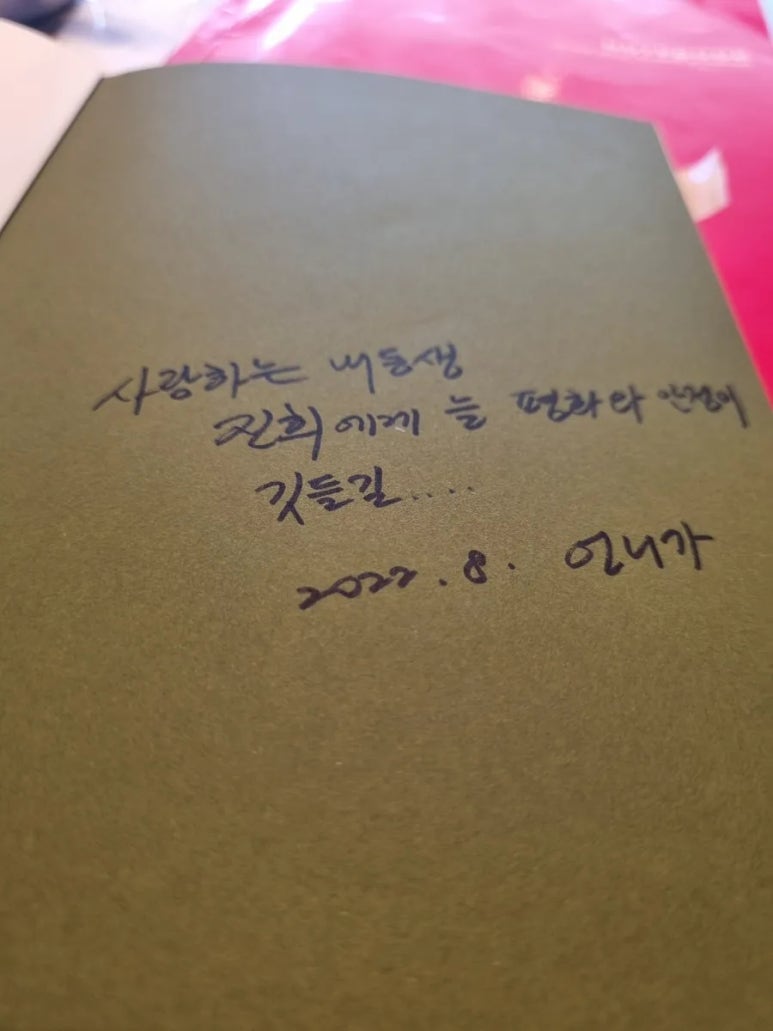 사랑하는 내동생
진희에게 늘 평화와 안정이
깃들길....
2022.8. 언니가